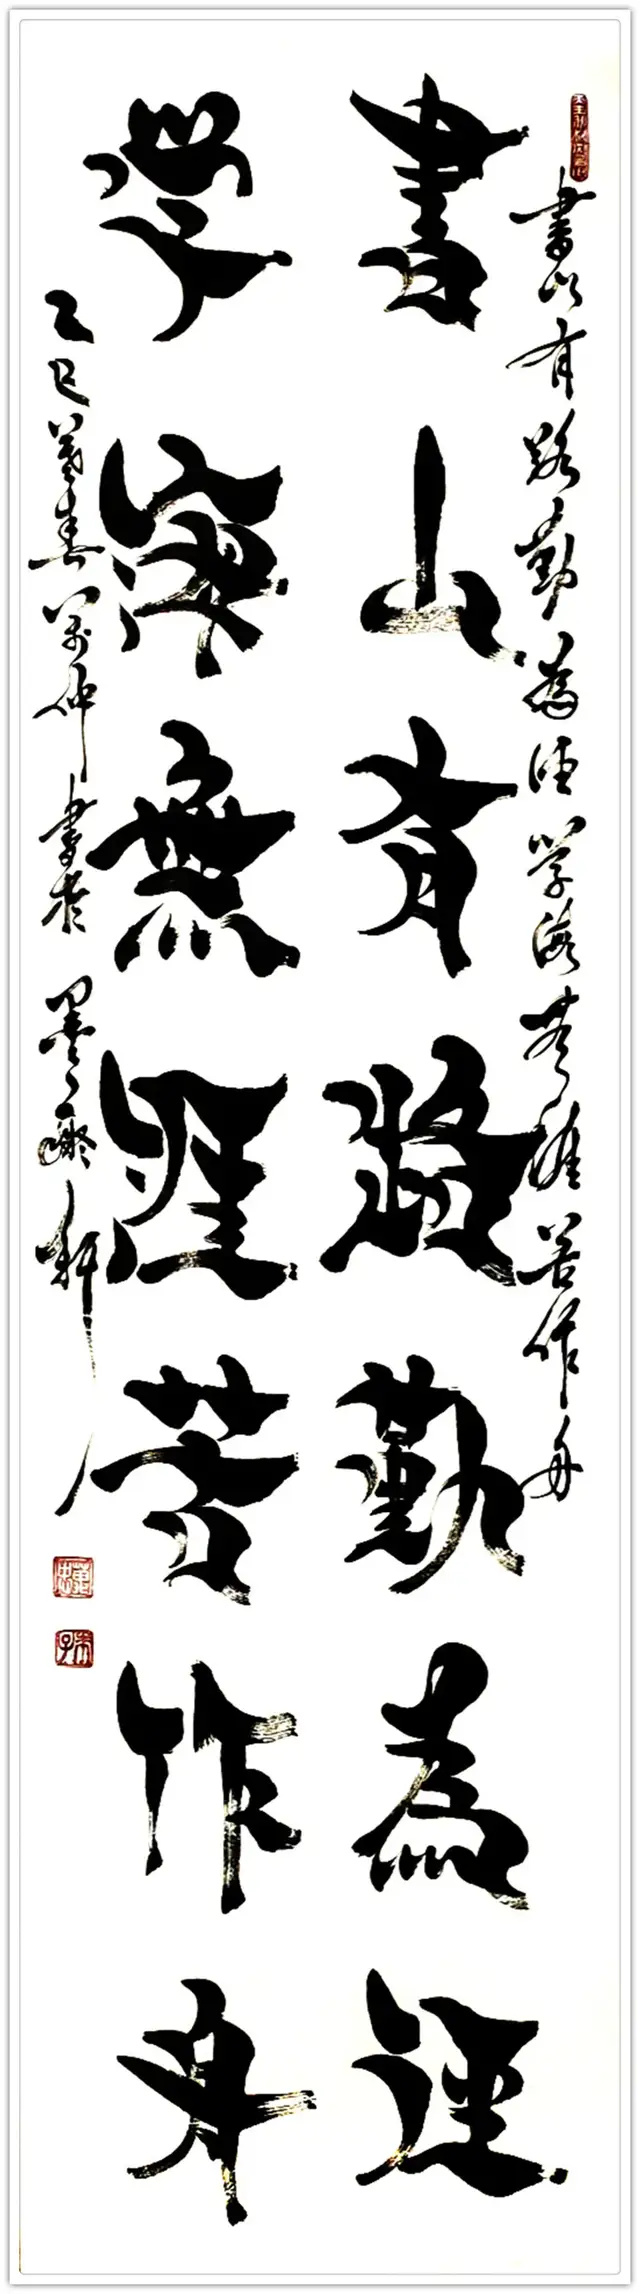 書山有路勤為徑學海無涯苦作舟
書山有路勤為徑
學海無涯苦作舟
乙巳暮春万仲書於墨癡軒